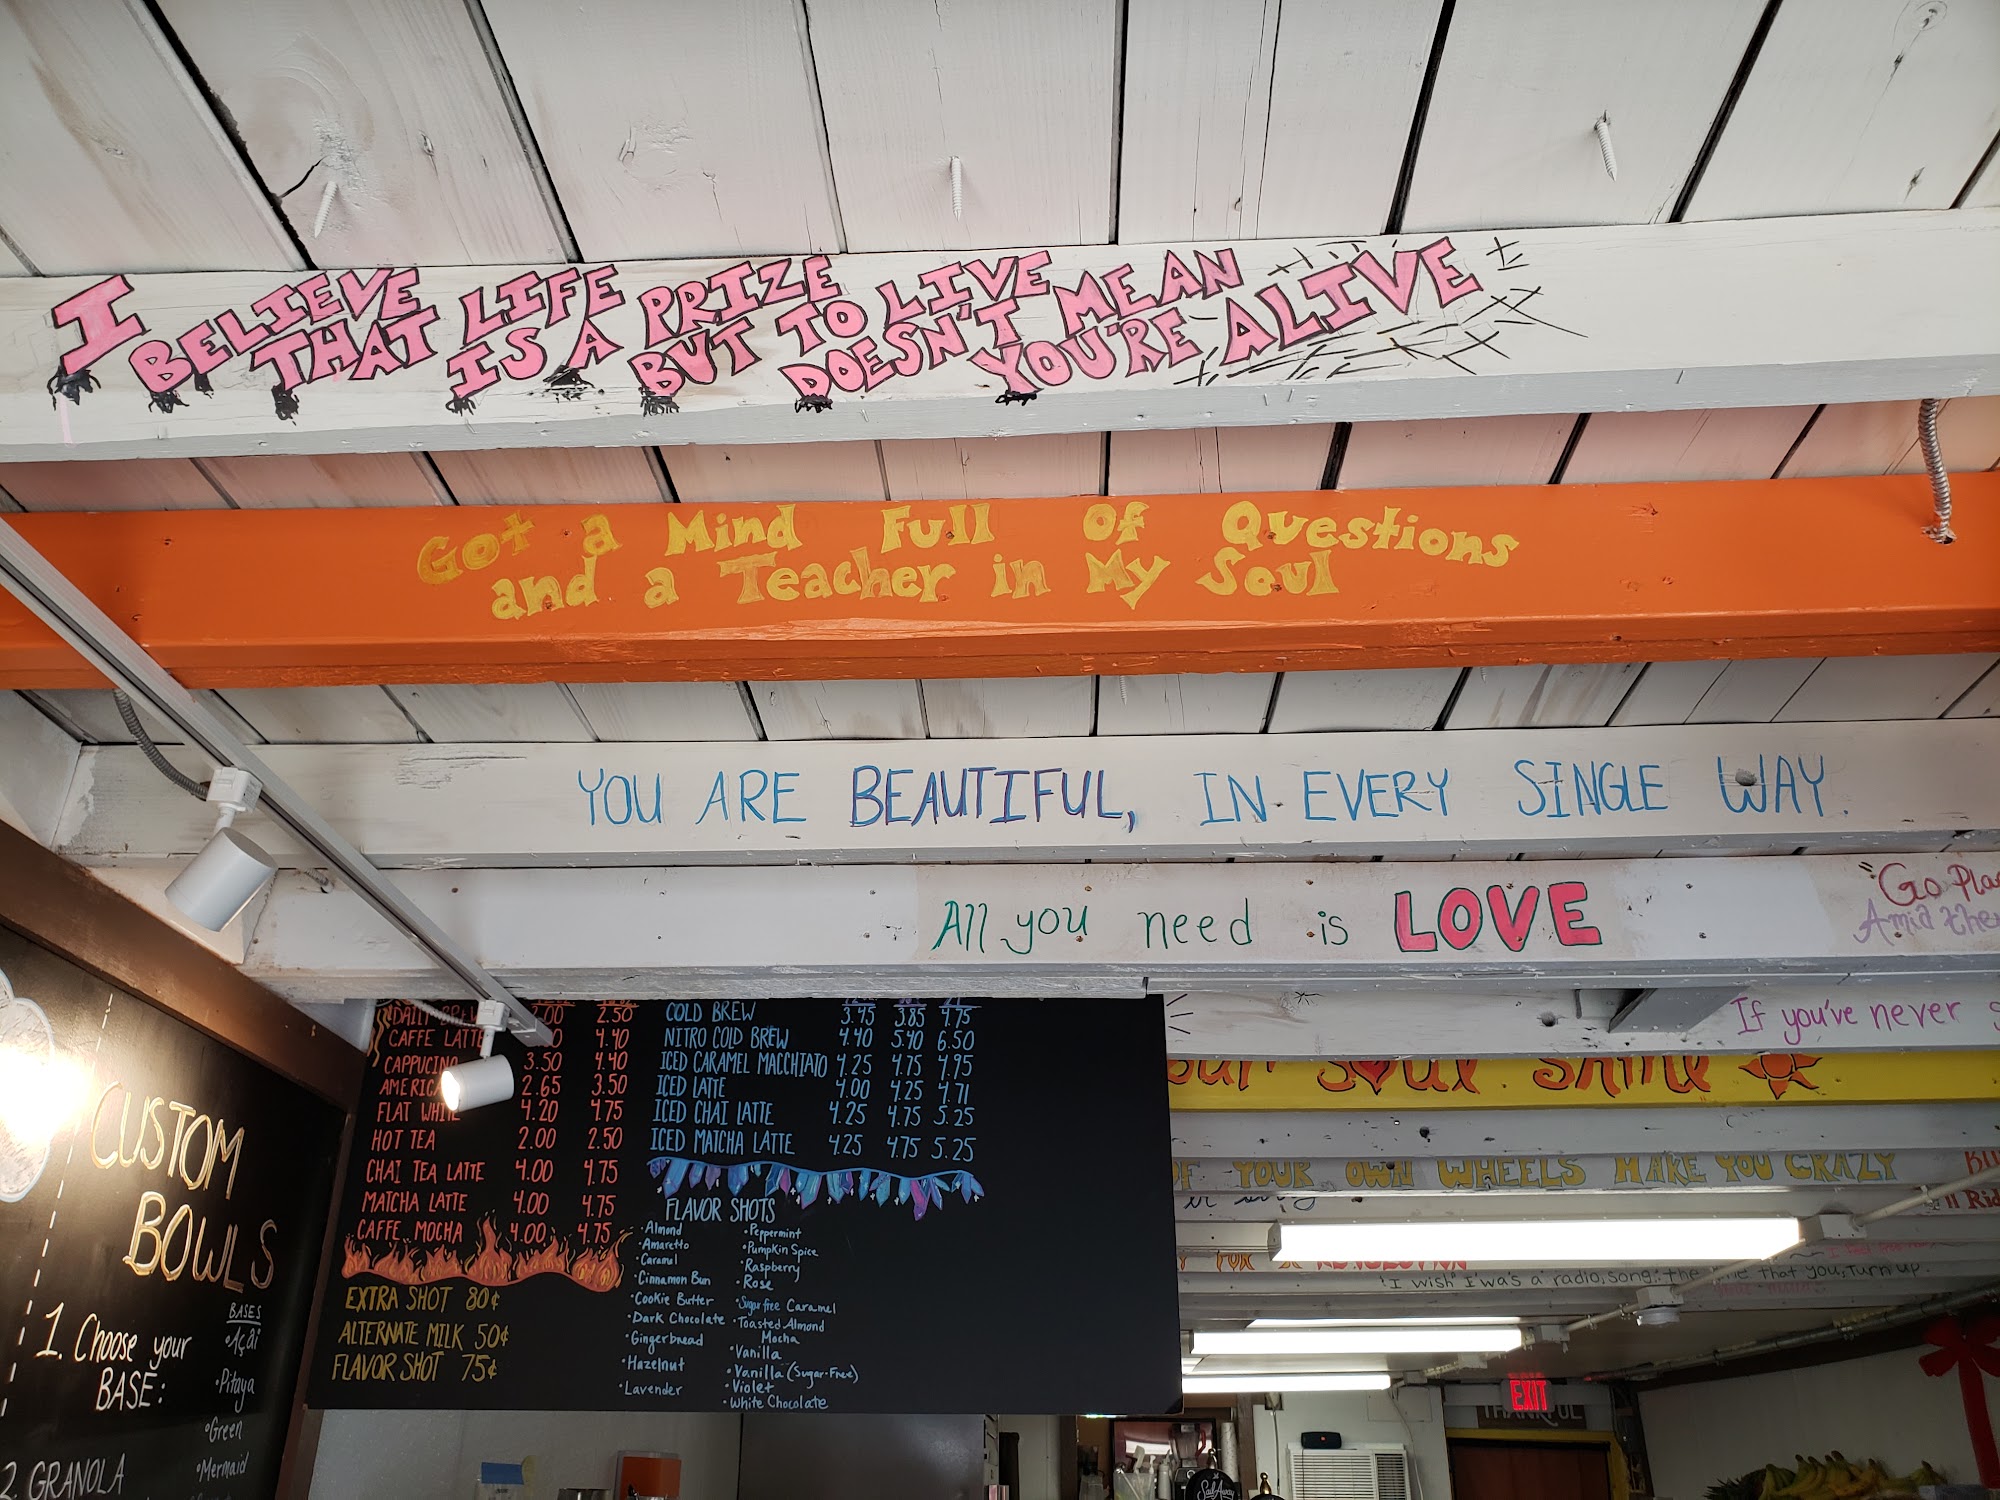 I BELIEVE THAT LIFE IS A PRIZE BUT TO LIVE DOESN'T MEAN YOU'RE ALIVE
Got a Mind Full Of Questions
and a Teacher in My Soul
YOU ARE BEAUTIFUL, IN EVERY SINGLE WAY.
All you need is LOVE
"Go
Amid the
If you've never
Soul Shine
OF YOUR OWN WHEELS MAKE YOU CRAZY
I wish I was a radio song: the one that you, turn up.
EXIT
THANKFUL
DAILY BREW 2.00 2.50
CAFFE LATTE 4.40
CAPPUCINO 3.50 4.40
AMERICA 2.65 3.50
FLAT WHITE 4.20 4.75
HOT TEA 2.00 2.50
CHAI TEA LATTE 4.00 4.75
MATCHA LATTE 4.00 4.75
CAFFE MOCHA 4.00 4.75
EXTRA SHOT 80¢
ALTERNATE MILK 50¢
FLAVOR SHOT 75¢
COLD BREW 3.45 3.85 4.75
NITRO COLD BREW 4.40 5.40 6.50
ICED CARAMEL MACCHIATO 4.25 4.75 4.95
ICED LATTE 4.00 4.25 4.71
ICED CHAI LATTE 4.25 4.75 5.25
ICED MATCHA LATTE 4.25 4.75 5.25
FLAVOR SHOTS
•Almond
•Amaretto
•Caramel
•Cinnamon Bun
•Cookie Butter
•Dark Chocolate
•Gingerbread
•Hazelnut
•Lavender
•Peppermint
•Pumpkin Spice
•Raspberry
•Rose
•Sugar free Caramel
•Toasted Almond
Mocha
•Vanilla
•Vanilla (Sugar-Free)
•Violet
•White Chocolate
CUSTOM
BOWLS
1. Choose your
BASE:
BASES
•Açai
•Pitaya
•Green
•Mermaid
2. GRANOLA